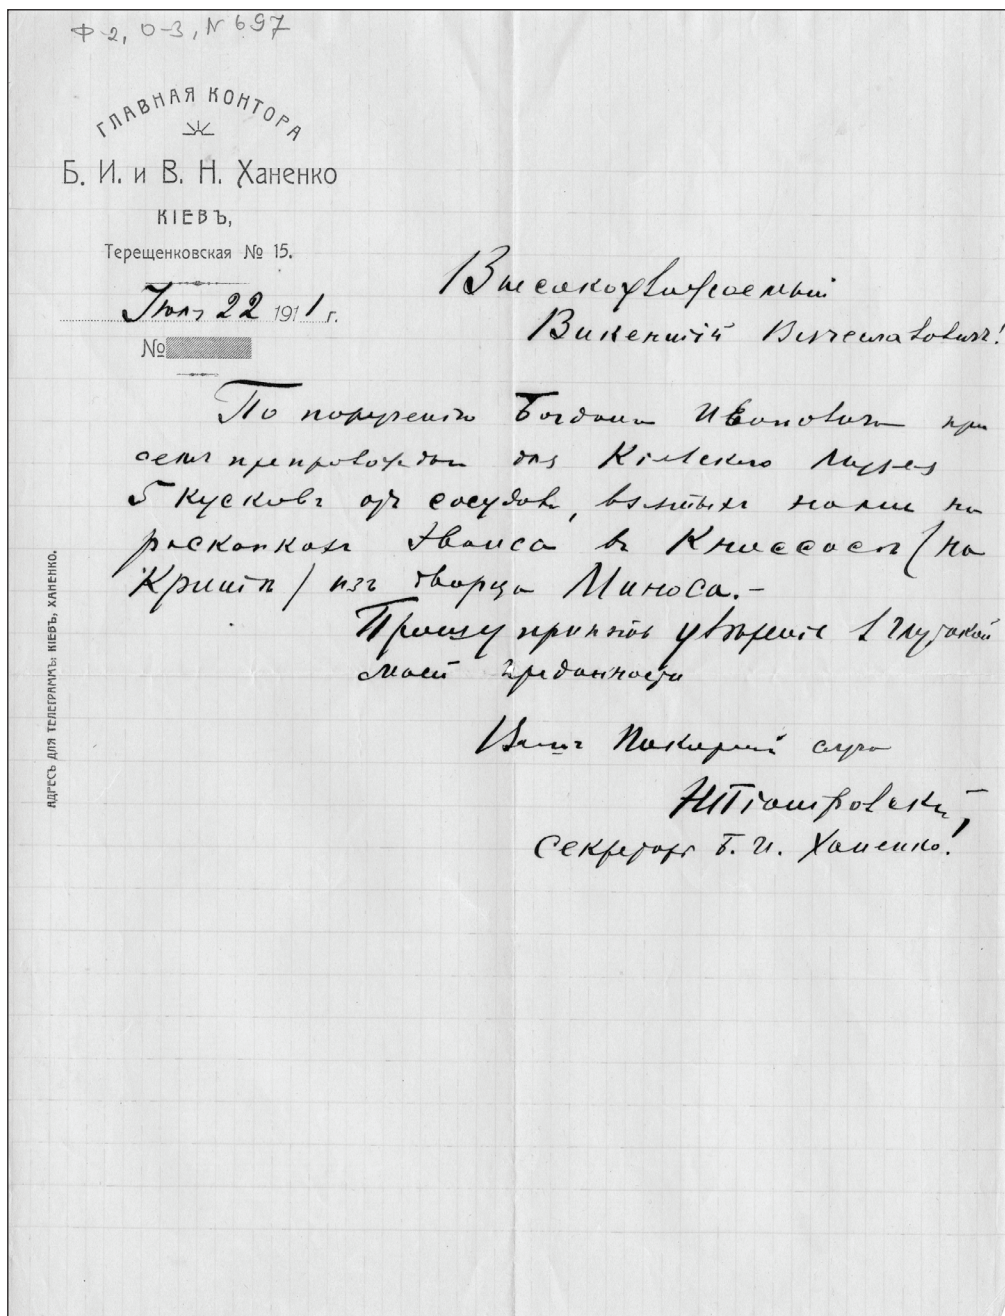 Ф-2, О-3, N 697
ГЛАВНАЯ КОНТОРА
Б. И. и В. Н. Ханенко
КІЕВЪ,
Терещенковская № 15.
22 1911 г.
№
Высокоуважаемый
Викентій Вячеславовичъ!
По порученію Богдана Ивановича при
семъ препровождаю для Кіевского Музея
5 кусковъ отъ сосудовъ, взятыхъ нами на
раскопкахъ Эванса въ Кноссосѣ (на
Критѣ) изъ дворца Миноса.-
Прошу принять увѣреніе в глубокой
моей преданности
Вашъ Покорный слуга
НПіотровскій,
секретарь Б. И. Ханенко!
АДРЕСЪ ДЛЯ ТЕЛЕГРАММЪ: КІЕВЪ, ХАНЕНКО.